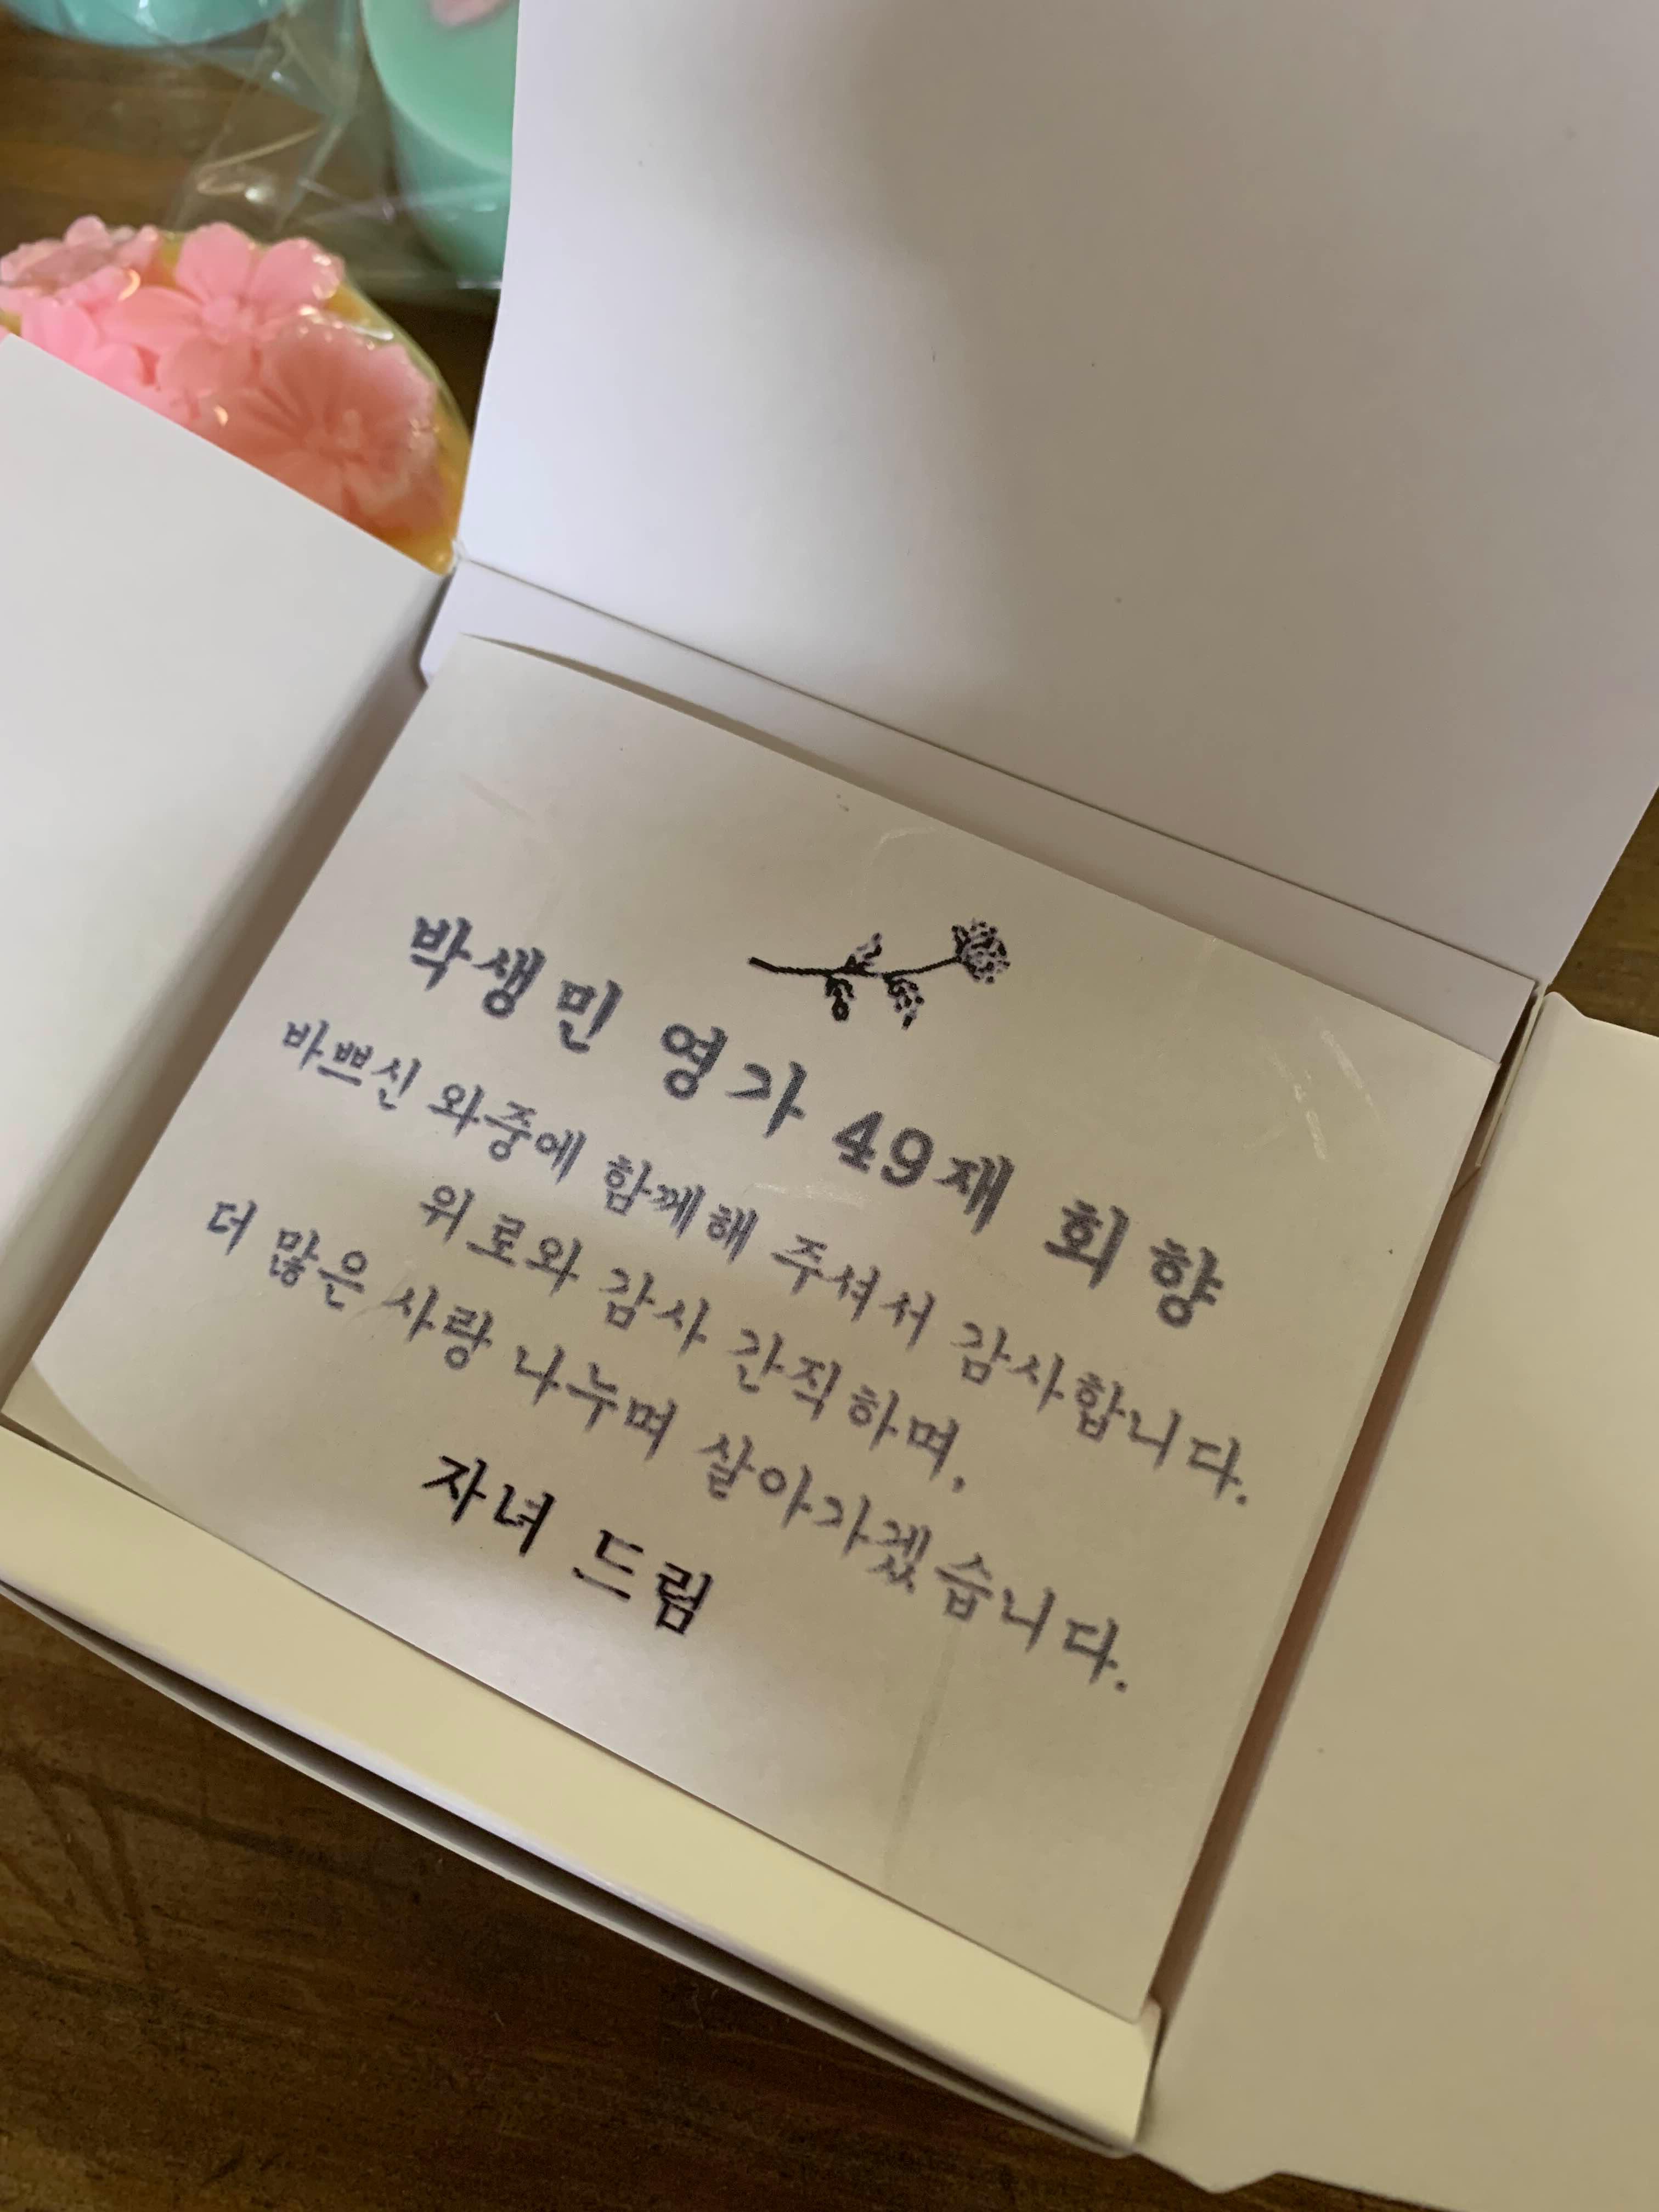 박생민 영가 49재 회향
바쁘신 와중에 함께해 주셔서 감사합니다.
위로와 감사 간직하며,
더 많은 사랑 나누며 살아가겠습니다.
자녀 드림